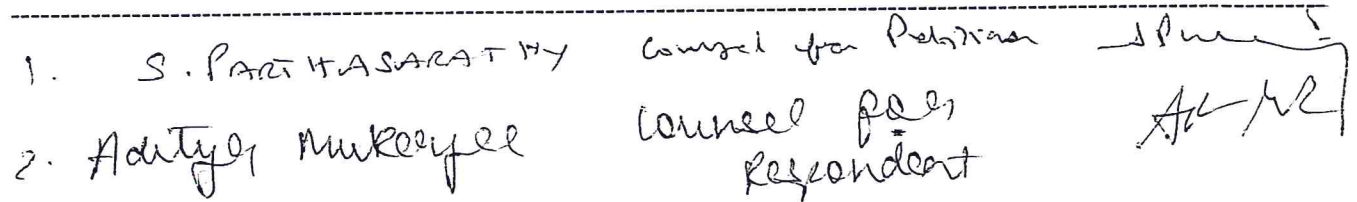 1. S. PARTHASARATHY Counsel for Petitioner
2. Aditya Mukerjee Counsel for
Respondent